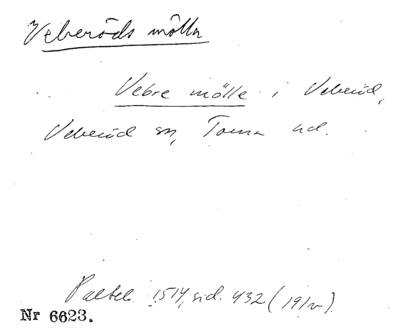 Veberöds mölla
Vebre mölle i Veberöd,
Veberöd sn, Torna hd.
Palteb. 1514, sid. 432 (191v).
Nr 6623.